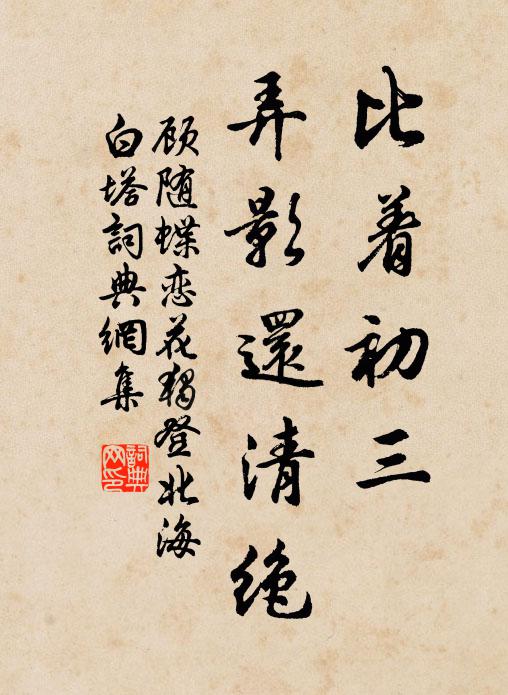 比着初三
弄影還清絶
顾随蝶恋花独登北海
白塔詞典網集
詞典網印